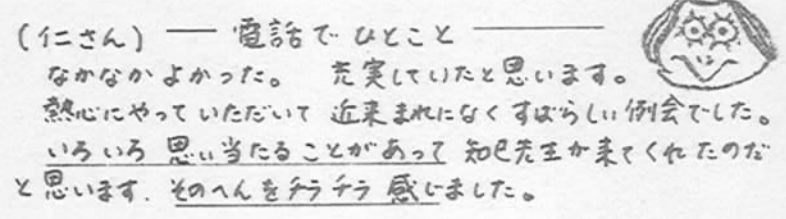 (仁さん) ── 電話で ひとこと ────
なかなかよかった。 充実していたと思います。
熱心にやっていただいて 近来まれになくすばらしい例会でした。
いろいろ 思い当たることがあって 知巳先生が来てくれたのだ
と思います. そのへんをチラチラ感じました。